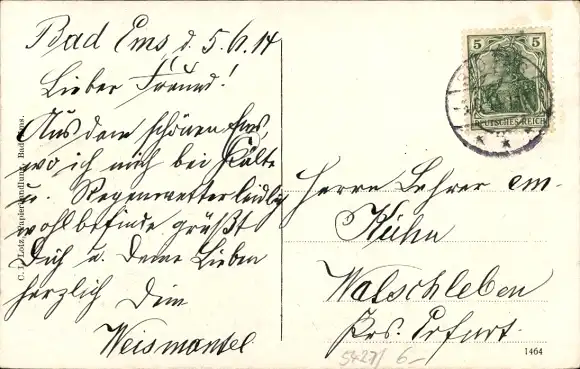 Bad Ems d. 5.6.14
Lieber Freund!
Aus dem schönen Ems,
wo ich mich bei Kälte
u. Regenwetter leidlich
wohl befinde grüßt
Dich u. Deine Lieben
herzlich Dein
Weismantel
C. L. Lotz, Papierhandlung, Bad Ems.
5 5
DEUTSCHES REICH
Herrn Lehrer em.
Kühn
Walschleben
Krs. Erfurt.
5427/ 6-
1464